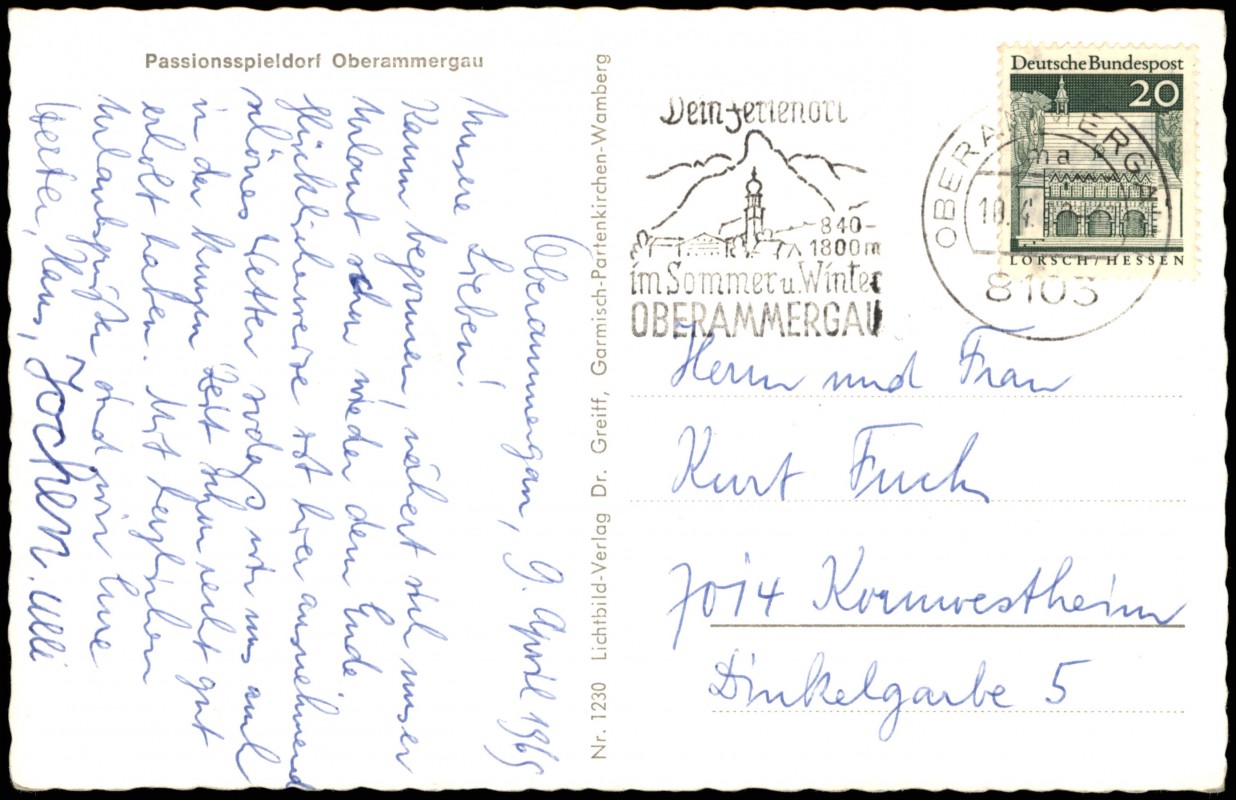 Passionsspieldorf Oberammergau
Oberammergau, 9. April 1969
Unsere Lieben!
Kaum begonnen, nähert sich unser
Urlaub schon wieder dem Ende
Glücklicherweise ist hier ausnehmend
schönes Wetter sodaß wir uns auch
in der kurzen Zeit schon recht gut
erholt haben. Mit herzlichen
Urlaubsgrüßen sind wir Eure
Hans, Jochen. Ulli
Nr. 1230 Lichtbild-Verlag Dr. Greiff, Garmisch-Partenkirchen-Wamberg
Dein Ferienort
840-
1800m
im Sommer u. Winter
OBERAMMERGAU
OBERAMMERGAU
8103
Deutsche Bundespost
20
LORSCH/HESSEN
Herrn und Frau
Kurt Fuchs
7014 Kornwestheim
Dinkelgarbe 5